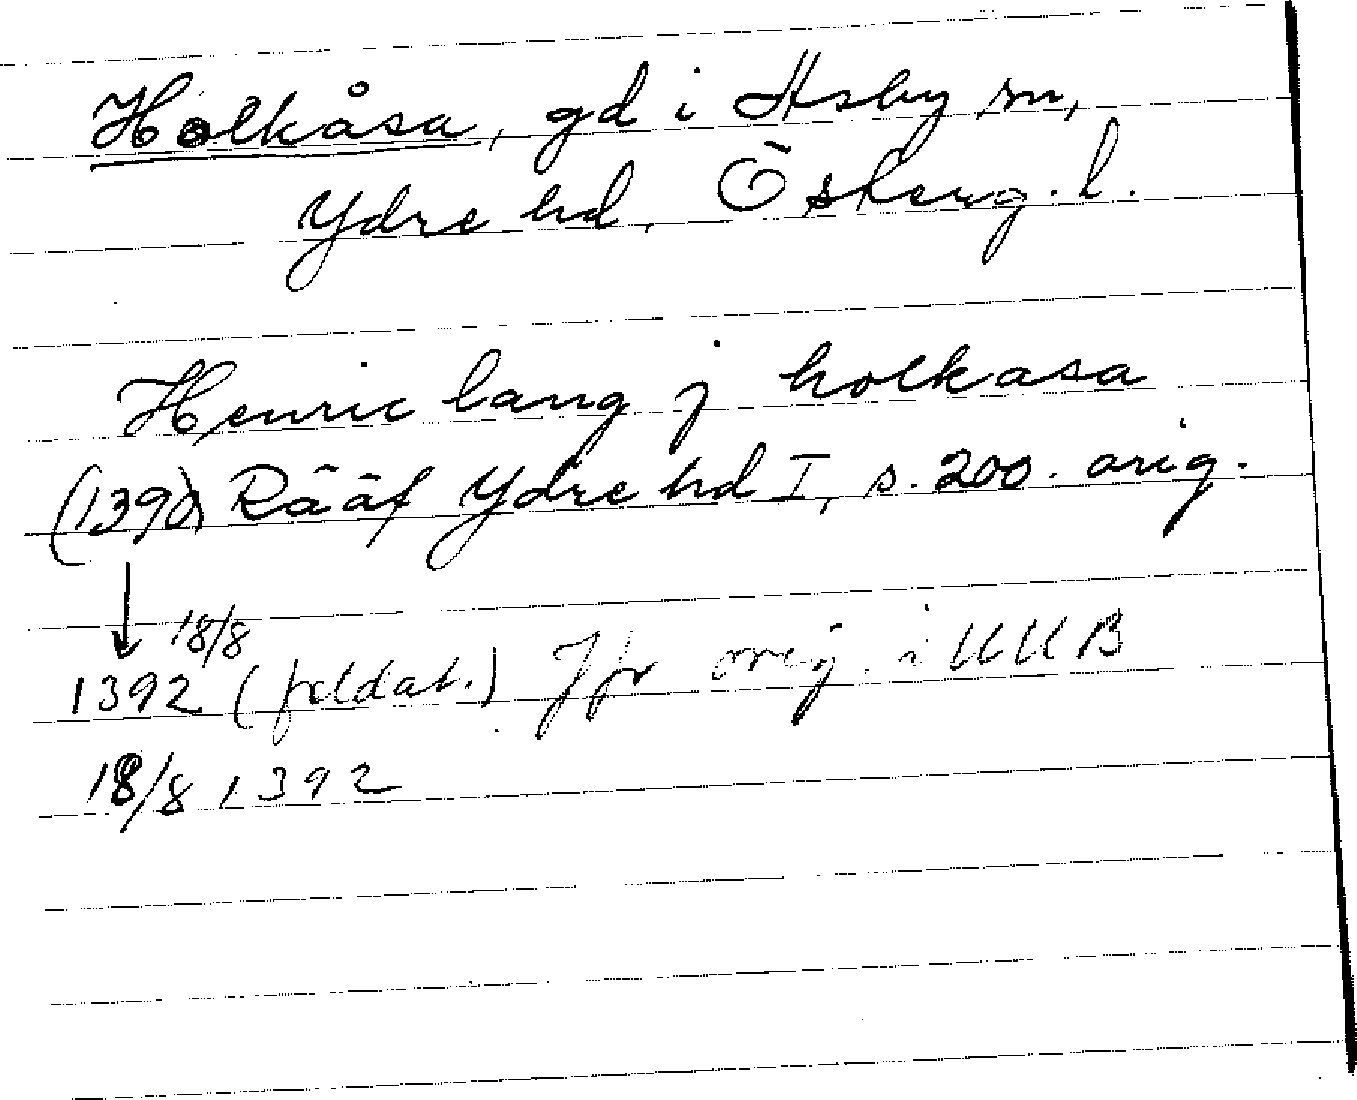 Holkåsa, gd i Asby sn,
Ydre hd, Österg. l.
Henric lang j holkasa
(1390) Rääf Ydre hd I, s. 200. orig.
18/8
1392 (feldat.) Jfr orig. i UUB
18/8 1392